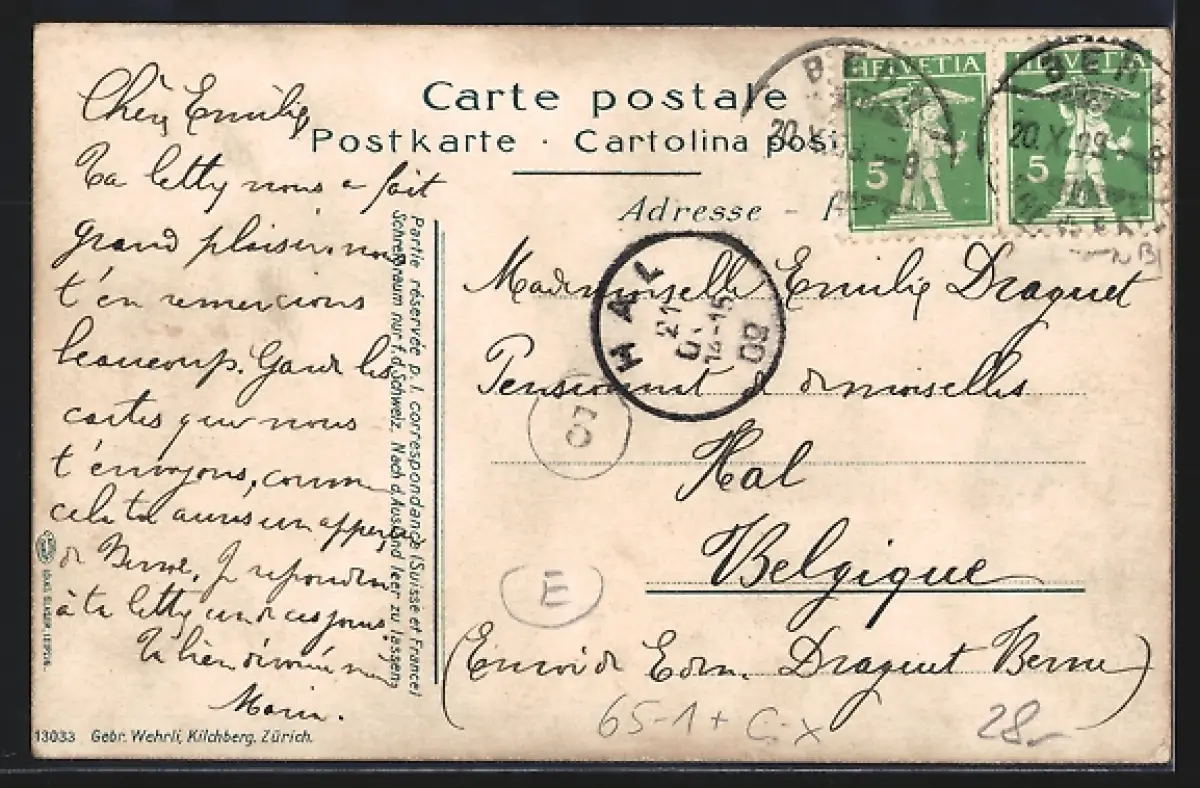 Carte postale
Postkarte · Cartolina posta
Adresse -
HELVETIA
5
HELVETIA
5
BERN
20.X.09.-8
BERN
20.X.09.-8
HAL
21
14-15
09
Chère Emilie,
Ta lettre nous a fait
grand plaisir, nous
t'en remercions
beaucoup. Garde les
cartes que nous
t'envoyons, comme
cela tu auras un apperçu
de Berne. Je répondrai
à ta lettre un de ces jours.
Ta bien dévouée
Marie.
Partie réservée p. l. correspondance (Suisse et France)
Schreibraum nur f. d. Schweiz. Nach d. Ausland leer zu lassen.
Mademoiselle Emilie Draguet
Pensionnat d demoiselles
Hal
Belgique
(Envoi de Edm. Draguet Berne)
E
65-1+ C-X
28.-
LOUIS GLASER LEIPZIG.
13033 Gebr. Wehrli, Kilchberg. Zürich.